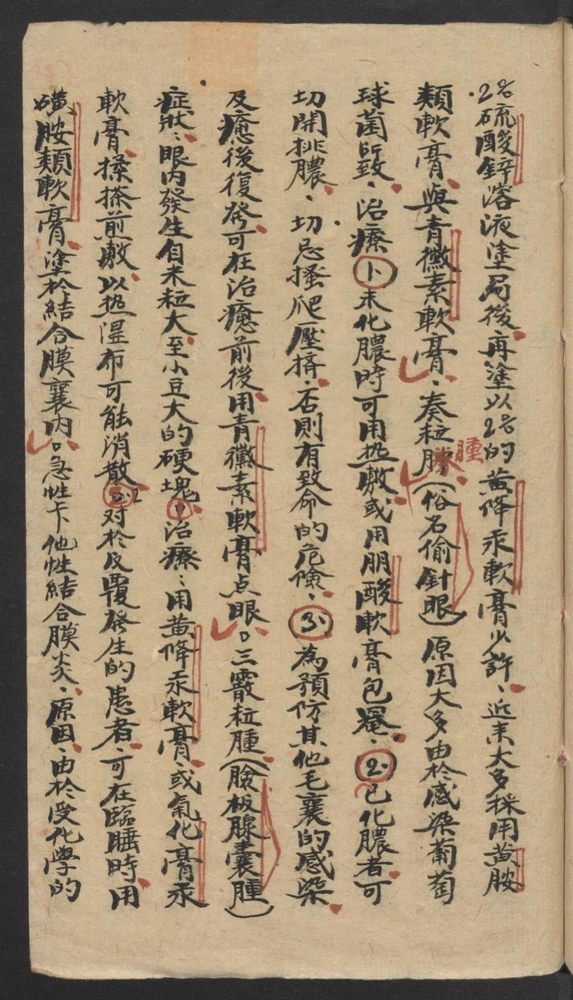 2%硫酸鋅溶液塗局後、再塗以2%的黃降汞軟膏少許、近来大多採用黃胺
類軟膏、與青黴素軟膏、麥粒腫(俗名偷針眼)原因大多由於感染葡萄
球菌所致、治療(1)未化膿時可用热敷、或用朋酸軟膏包罨、(2)已化膿者可
切開排膿、切忌搔爬壓擠、否則有致命的危險、(3)為預防其他毛襄的感染
及癒後復發、可在治癒前後用青黴素軟膏点眼。三霰粒腫(臉板腺囊腫)
症狀：眼内發生自米粒大至小豆大的硬塊、(1)治療：用黃降汞軟膏、或氧化膏汞
軟膏、揉搽前敷以热湿布可能消散(2)对於反覆發生的患者、可在臨睡時、用
磺胺類軟膏、塗於結合膜襄内。急性卡他性結合膜炎、原因、由於受化學的